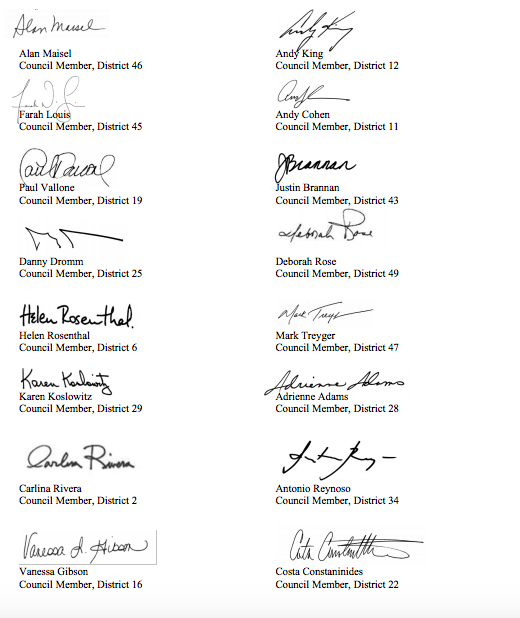 Alan Maisel
Alan Maisel
Council Member, District 46
Andy King
Andy King
Council Member, District 12
Farah Louis
Council Member, District 45
Andy Cohen
Council Member, District 11
Paul Vallone
Council Member, District 19
JBrannan
Justin Brannan
Council Member, District 43
Danny Dromm
Council Member, District 25
Deborah Rose
Deborah Rose
Council Member, District 49
Helen Rosenthal
Helen Rosenthal
Council Member, District 6
Mark Treyger
Mark Treyger
Council Member, District 47
Karen Koslowitz
Karen Koslowitz
Council Member, District 29
Adrienne Adams
Adrienne Adams
Council Member, District 28
Carlina Rivera
Carlina Rivera
Council Member, District 2
Antonio Reynoso
Council Member, District 34
Vanessa L. Gibson
Vanessa Gibson
Council Member, District 16
Costa Constaninides
Council Member, District 22